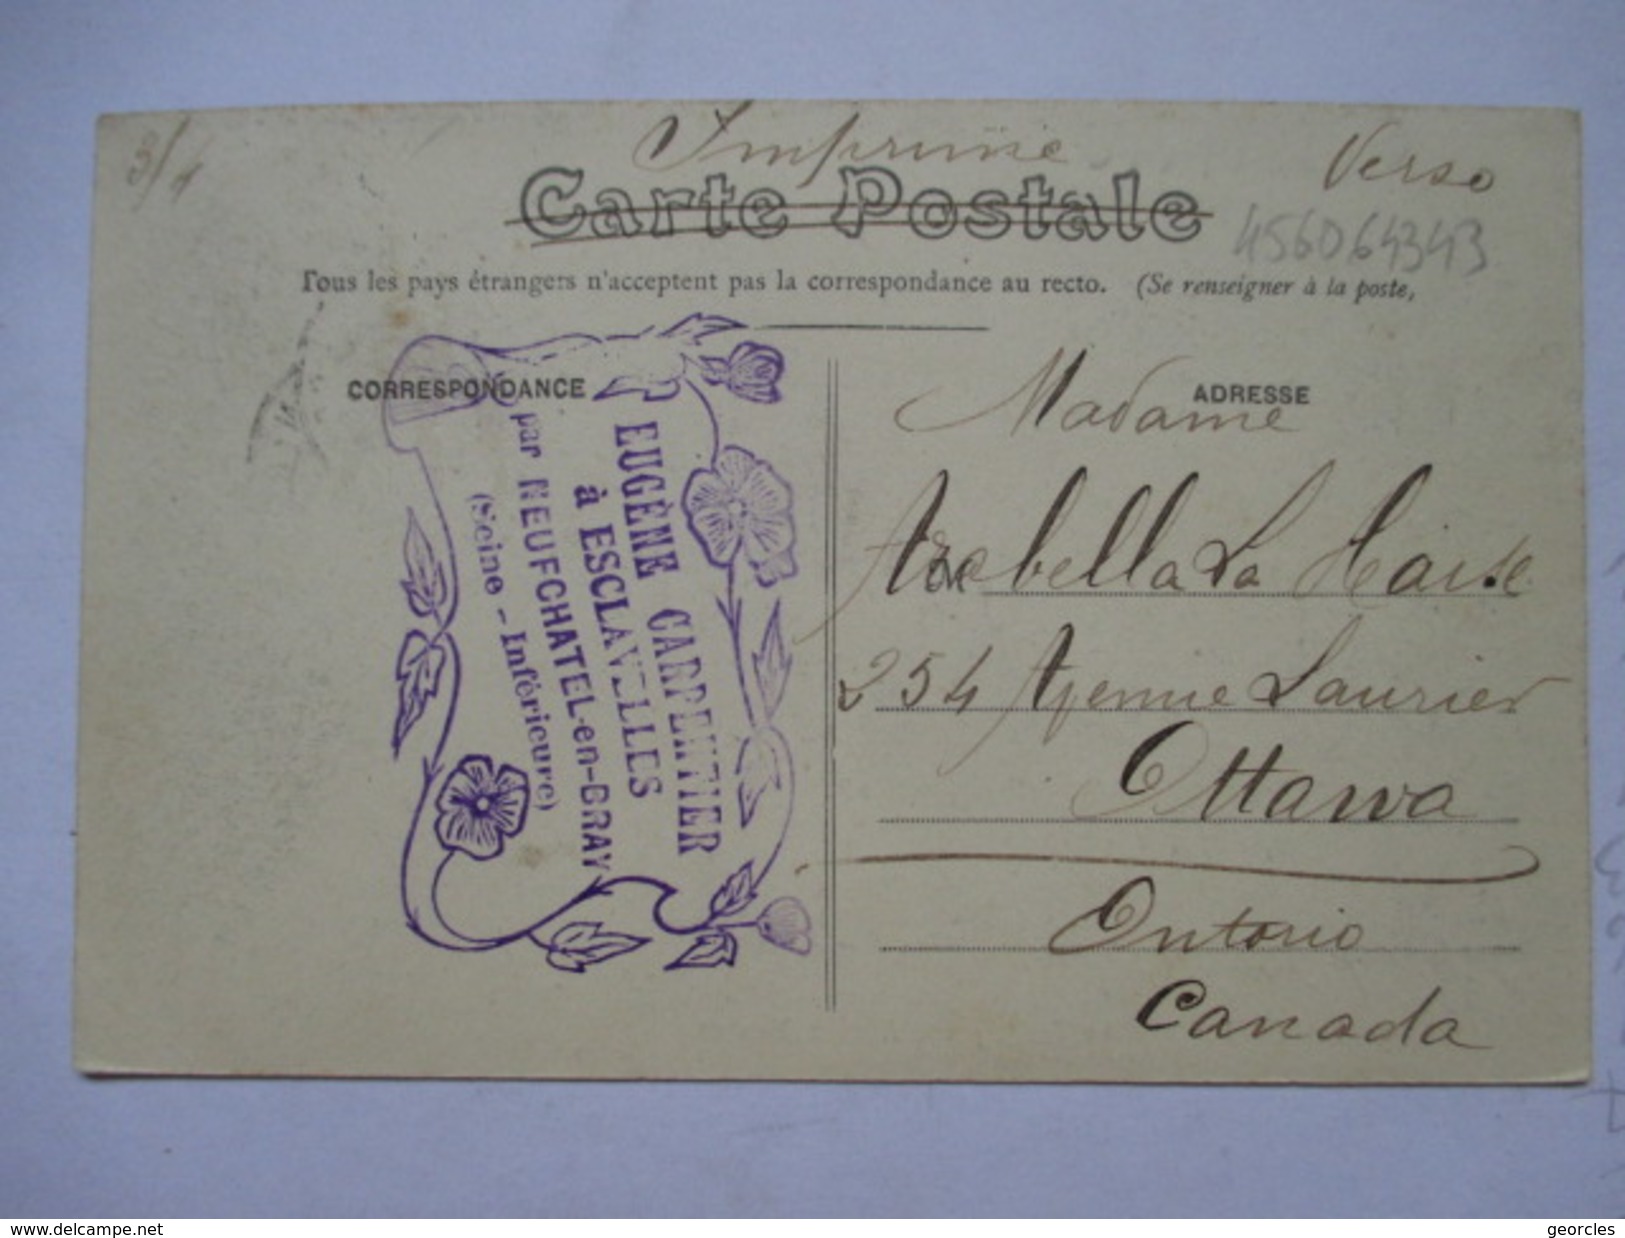 3/4
Imprimé Verso
Carte Postale
456064343
Tous les pays étrangers n'acceptent pas la correspondance au recto. (Se renseigner à la poste,
CORRESPONDANCE
EUGÈNE CARPENTIER
à ESCLAVELLES
par NEUFCHATEL-en-BRAY
(Seine-Inférieure)
ADRESSE
Madame
Arabella La
254 Avenue Laurier
Ottawa
Ontario
Canada
www.delcampe.net
georcles